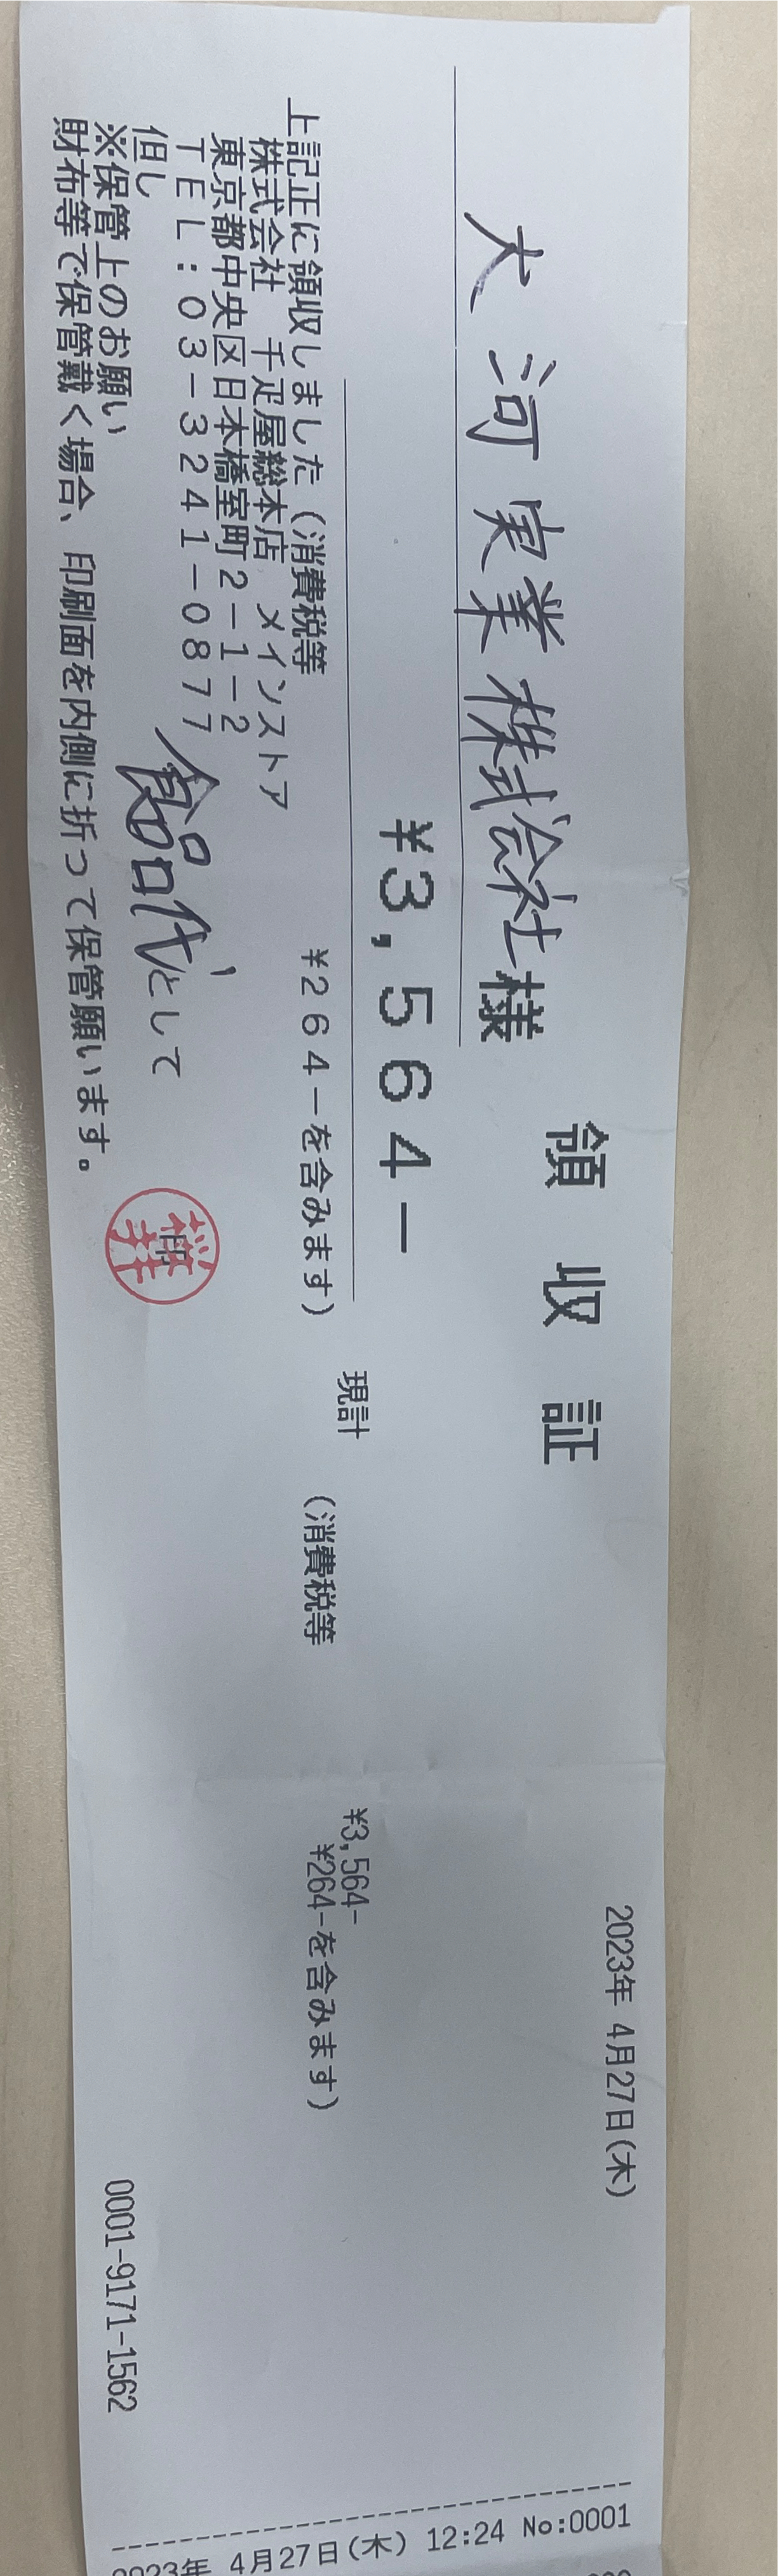 領収証
2023年 4月27日(木)
大河実業株式会社様
¥3,564-
現計 ¥3,564-
上記正に領収しました(消費税等 ¥264-を含みます)
(消費税等 ¥264-を含みます)
株式会社 千疋屋総本店 メインストア
東京都中央区日本橋室町2-1-2
TEL:03-3241-0877
但し 食品代として
印
※保管上のお願い
財布等で保管戴く場合、印刷面を内側に折って保管願います。
0001-9171-1562
2023年 4月27日(木) 12:24 No:0001